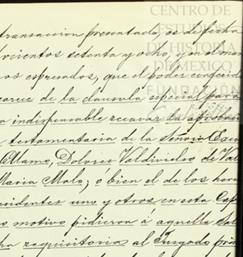 transaccion presentado se dé fecha
vecientos setenta y ocho, y
os espresados, que el poder conferido
carece de la clausula especial para
a indispensable recavar la aprobacion
testamentaria de la Señora
Alamo, Dolores Valdivielso de Val
Maria Malo; ó bien el de los here
sidentes unos y otros en esta Cap
o motivo pidieron á aquella Sala
ha requisitoria al Juzgado pri
CENTRO DE
ESTUDIOS
DE HISTORIA
DE MEXICO
FUNDACION